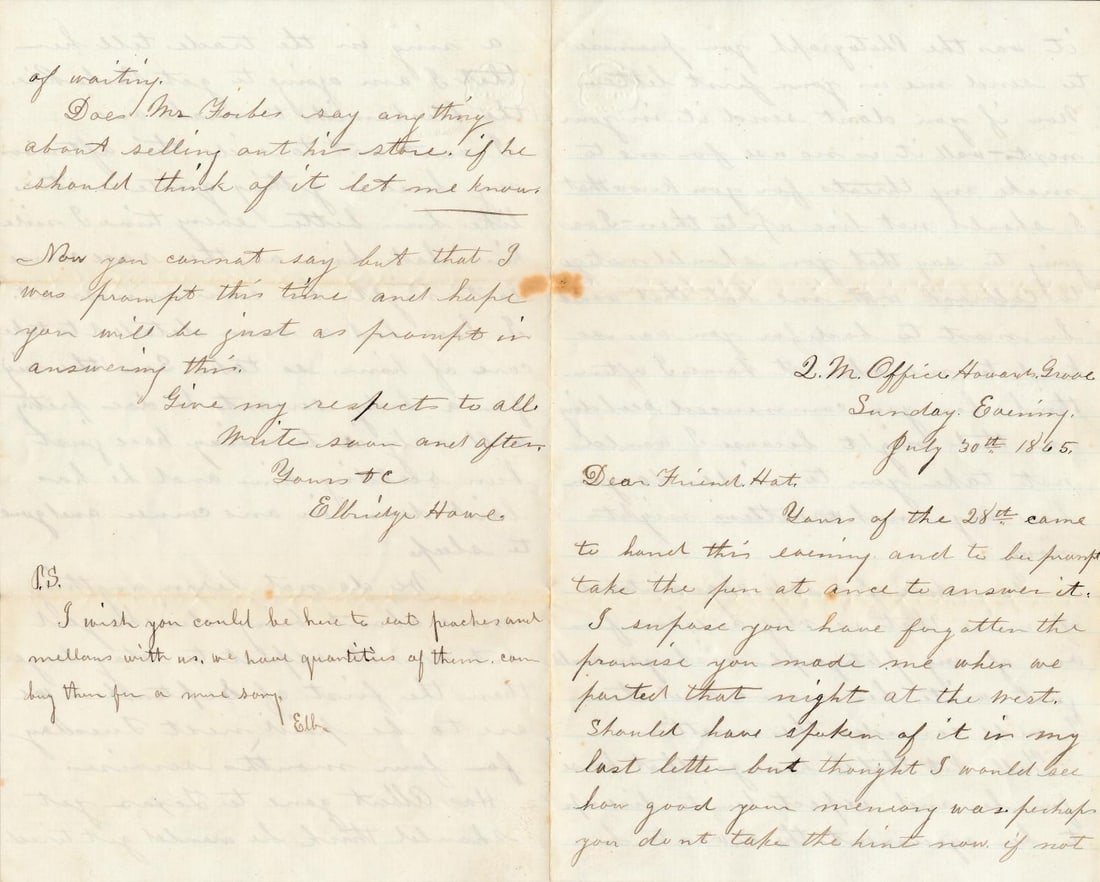 of waiting.
Does Mr Forbes say anything
about selling out his store. if he
should think of it let me know.
Now you cannot say but that I
was prompt this time and hope
you will be just as prompt in
answering this.
Give my respects to all.
Write soon and often.
Yours &C
Elbridge Howe.
P.S.
I wish you could be here to eat peaches and
mellons with us. we have quantities of them. can
buy them for a mere song.
Elb.
Q.M. Office Howards Grove
Sunday. Evening.
July 30th 1865.
Dear Friend. Hat.
Yours of the 28th came
to hand this evening and to be prompt
take the pen at once to answer it.
I supose you have forgotten the
promise you made me when we
parted that night at the West.
Should have spoken of it in my
last letter but thought I would see
how good your memory was. perhaps
you dont take the hint now. if not